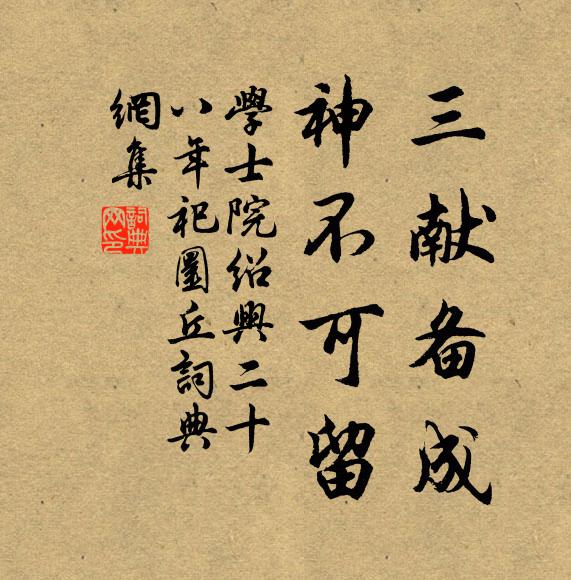 三献备成
神不可留
學士院绍興二十
八年祀圜丘詞典
網集
詞典網印